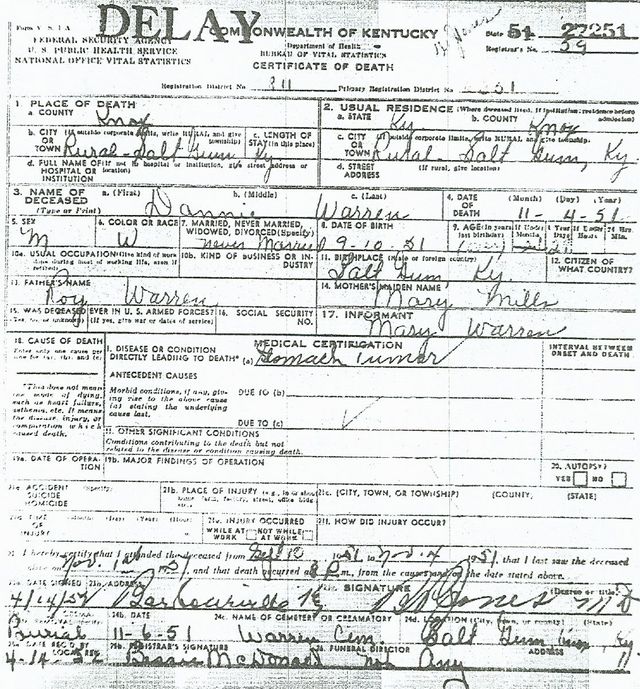 DELAY
Form V. S. 1 A
FEDERAL SECURITY AGENCY
U. S. PUBLIC HEALTH SERVICE
NATIONAL OFFICE VITAL STATISTICS
COMMONWEALTH OF KENTUCKY
Department of Health
BUREAU OF VITAL STATISTICS
CERTIFICATE OF DEATH
State 51 27251
Registrar's No. 59
Registration District No. 811 Primary Registration District No.
1. PLACE OF DEATH
a. COUNTY Knox
b. CITY (If outside corporate limits, write RURAL and give township)
OR TOWN Rural - Salt Gum Ky
c. LENGTH OF STAY (in this place)
d. FULL NAME OF (If not in hospital or institution, give street address or location)
HOSPITAL OR INSTITUTION
2. USUAL RESIDENCE (Where deceased lived, if institution: residence before admission)
a. STATE Ky b. COUNTY Knox
c. CITY (If outside corporate limits, write RURAL and give township)
OR TOWN Rural - Salt Gum, Ky.
d. STREET ADDRESS (If rural, give location)
3. NAME OF DECEASED (Type or Print)
a. (First) b. (Middle) c. (Last)
Dannie Warren
4. DATE OF DEATH (Month) (Day) (Year)
11- 4-51
5. SEX M
6. COLOR OR RACE W
7. MARRIED, NEVER MARRIED, WIDOWED, DIVORCED (Specify)
Never Married
8. DATE OF BIRTH
9-10-51
9. AGE (In years last birthday) If Under 1 Year Months Days If Under 24 Hrs. Hours Min.
10a. USUAL OCCUPATION (Give kind of work done during most of working life, even if retired)
10b. KIND OF BUSINESS OR INDUSTRY
11. BIRTHPLACE (State or foreign country)
Salt Gum, Ky
12. CITIZEN OF WHAT COUNTRY?
13. FATHER'S NAME
Roy Warren
14. MOTHER'S MAIDEN NAME
Mary Mills
15. WAS DECEASED EVER IN U. S. ARMED FORCES?
(Yes, no, or unknown) (If yes, give war or dates of service)
16. SOCIAL SECURITY NO.
17. INFORMANT
Mary Warren
18. CAUSE OF DEATH
Enter only one cause per line for (a), (b), and (c)
MEDICAL CERTIFICATION
INTERVAL BETWEEN ONSET AND DEATH
I. DISEASE OR CONDITION
DIRECTLY LEADING TO DEATH* (a) Stomach Tumor
*This does not mean the mode of dying, such as heart failure, asthenia, etc. It means the disease, injury, or complication which caused death.
ANTECEDENT CAUSES
Morbid conditions, if any, giving rise to the above cause (a) stating the underlying cause last.
DUE TO (b)
DUE TO (c)
II. OTHER SIGNIFICANT CONDITIONS
Conditions contributing to the death but not related to the disease or condition causing death.
19a. DATE OF OPERATION
19b. MAJOR FINDINGS OF OPERATION
20. AUTOPSY?
YES NO
21a. ACCIDENT SUICIDE HOMICIDE (Specify)
21b. PLACE OF INJURY (e.g., in or about home, farm, factory, street, office bldg., etc.)
21c. (CITY, TOWN, OR TOWNSHIP) (COUNTY) (STATE)
21d. TIME OF INJURY (Month) (Day) (Year) (Hour)
21e. INJURY OCCURRED
WHILE AT WORK NOT WHILE AT WORK
21f. HOW DID INJURY OCCUR?
22. I hereby certify that I attended the deceased from Sept 12 1951 to Nov. 4 1951, that I last saw the deceased
alive on Nov. 1951, and that death occurred at 8 P.m., from the causes and on the date stated above.
23a. DATE SIGNED 23b. ADDRESS SIGNATURE (Degree or title)
4/14/52 Barbourville Ky Jones MD
DATE 24c. NAME OF CEMETERY OR CREMATORY 24d. LOCATION (City, town, or county) (State)
Burial 11-6-51 Warren Cem. Salt Gum Ky
DATE REC'D BY LOCAL REG. 25b. REGISTRAR'S SIGNATURE FUNERAL DIRECTOR ADDRESS
4-14-52 McDonald not any